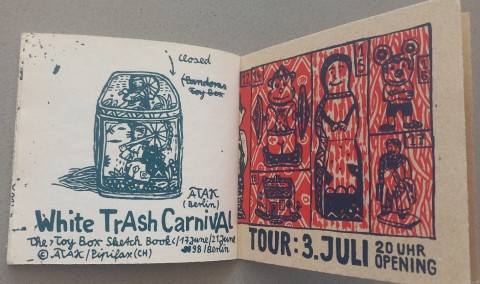 closed
Pandoras
Toy Box
ATAK
(Berlin)
White TrAsh CarnivAl
The > Toy Box Sketch Book < / 17 June / 21 June
© ATAK / Pipifax (CH) 98 / Berlin
15
16
17
TOUR: 3. JULI 20 UHR
OPENING